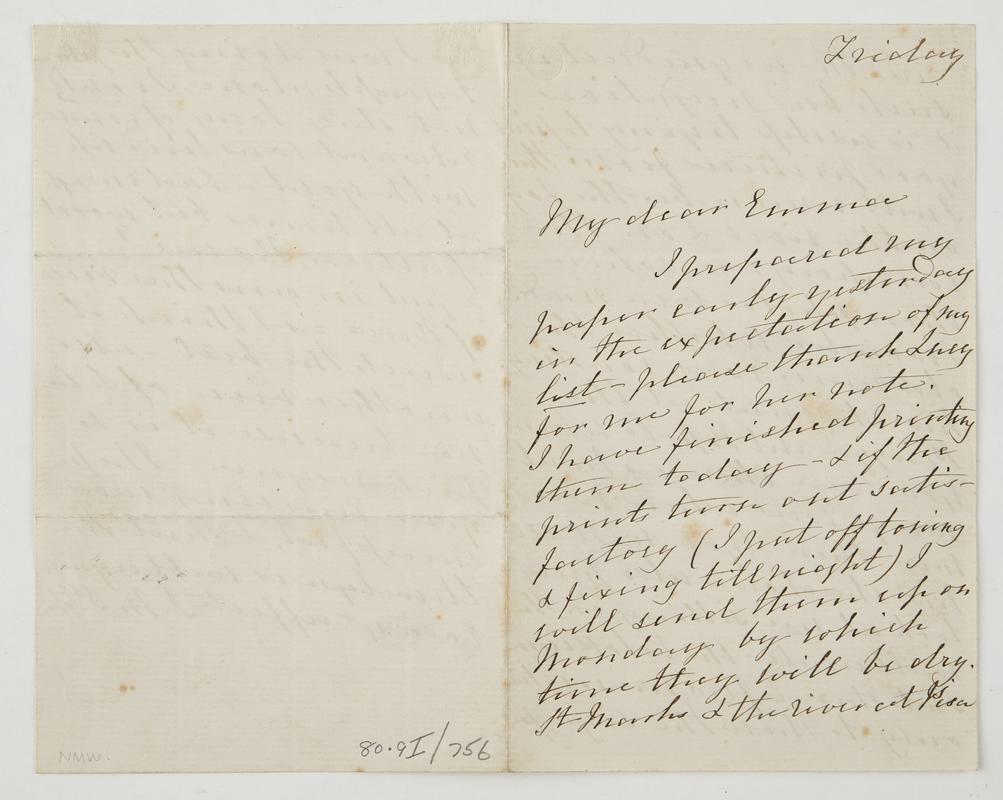 Friday
My dear Emma
I prepared my
paper early yesterday
in the expectation of my
list - please thank Lucy
for me for her note.
I have finished printing
them today - & if the
prints turn out satis-
factory (I put off toning
& fixing till night) I
will send them up on
Monday by which
time they will be dry.
St Marks & the river at Pisa
NMW.
80.9I/756